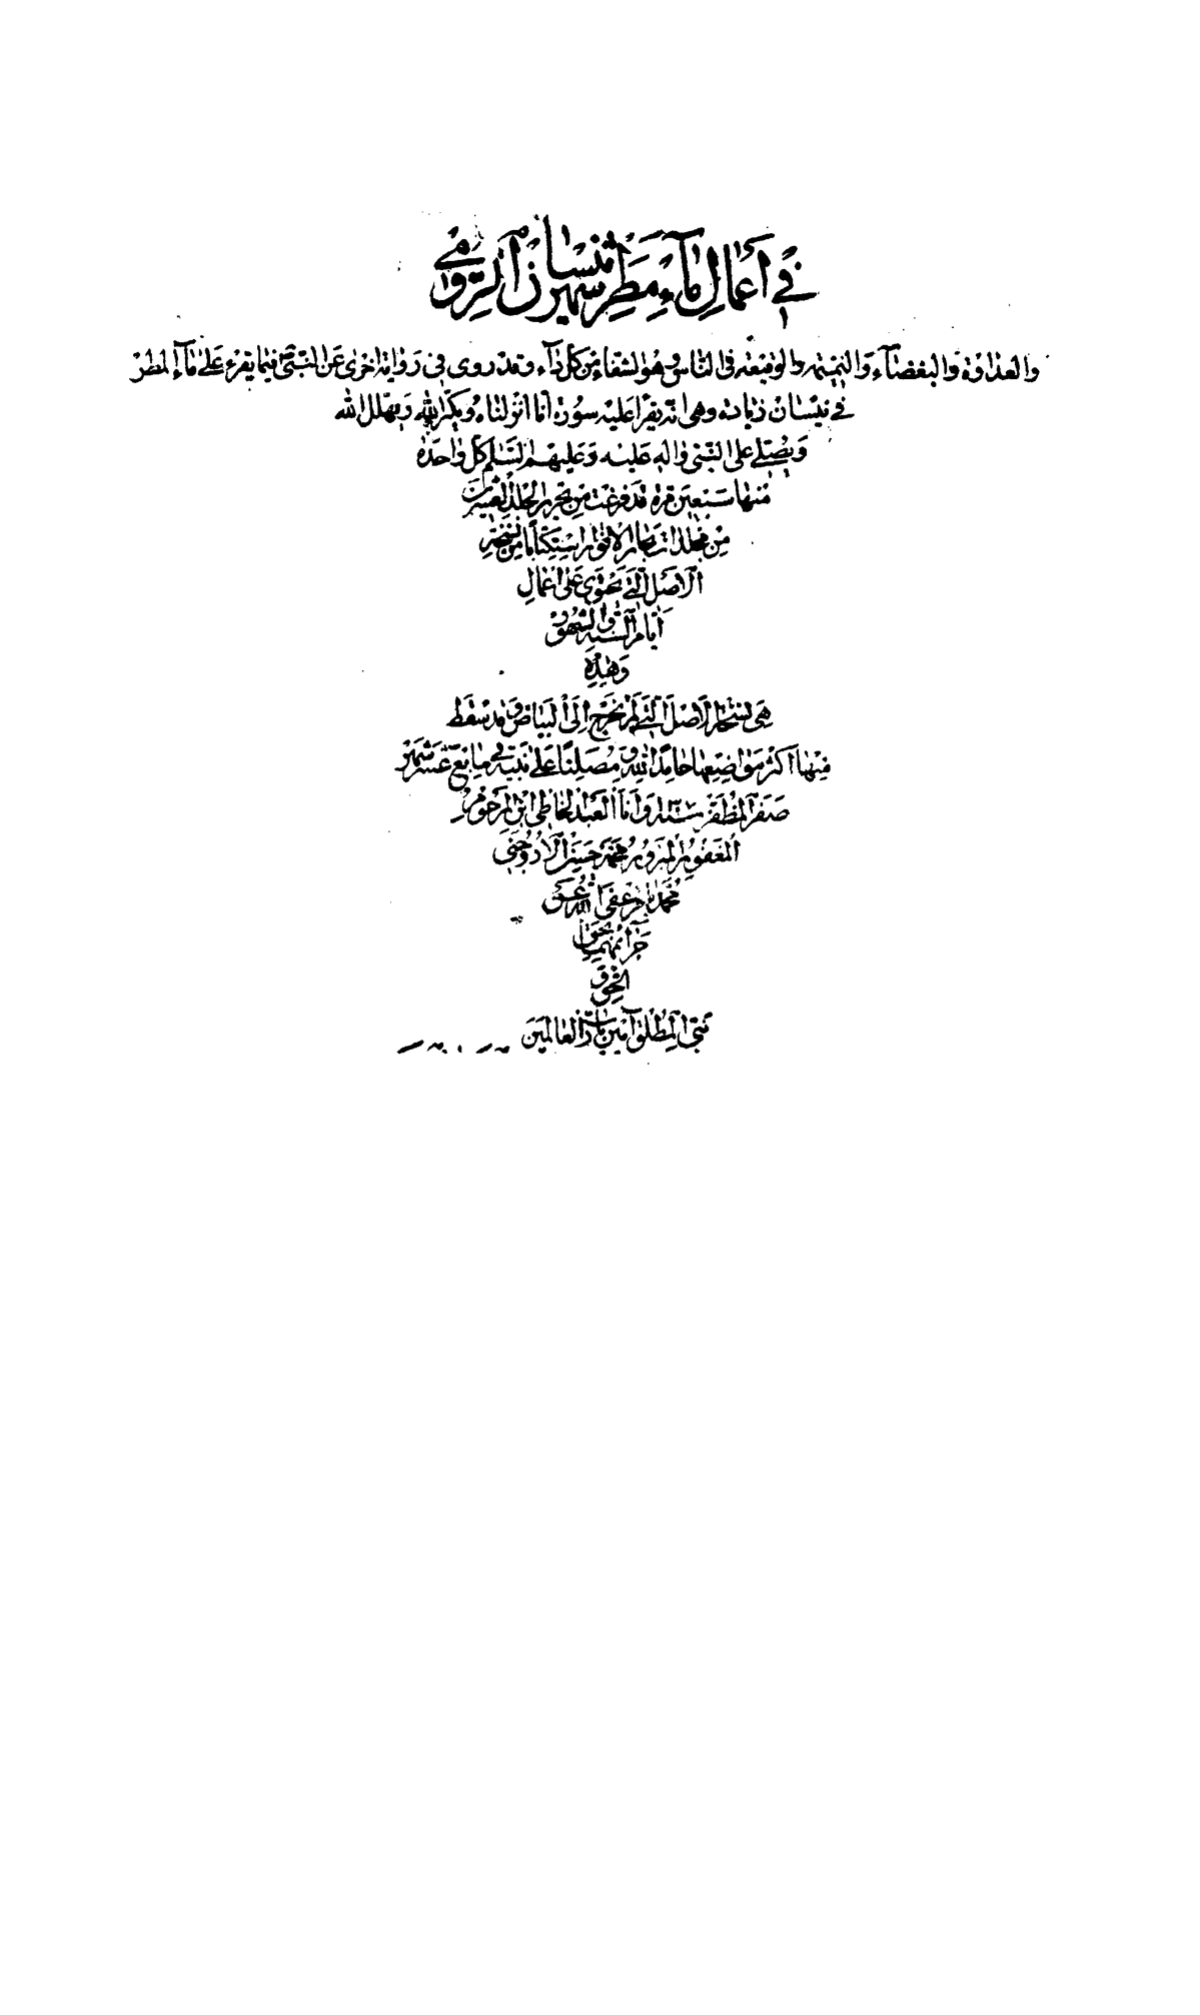 في أعمال ماء مطر شهر نيسان الرومي
والعداوة والبغضاء والنميمة والوقيعة في الناس وهو الشفاء من كل داء وقد روى في رواية اخرى عن النبي ص فيما يقرء على ماء المطر
في نيسان زيادة وهي انه يقرا عليه سورة انا انزلناه ويكبر الله ويهلل الله
ويصلي على النبي واله عليه وعليهم السلم كل واحدة
منها سبعين مرة قد فرغت من تحرير المجلد العشرين
من مجلدات بحار الانوار استكتابا من نسخة
الاصل التي تحتوى على اعمال
ايام السنة والشهور
وهذه
هي نسخة الاصل التي لم تخرج الى البياض وقد سقط
منها اكثر مواضعها حامدا لله ومصليا على نبيه في سابع عشر شهر
صفر المظفر سنة وانا العبد الخاطى ابن المرحوم
المغفور المبرور محمد حسن
محمد باقر عفى الله عن
جرائمهما بحق
الحق
نبي المطلق آمين يا رب العالمين